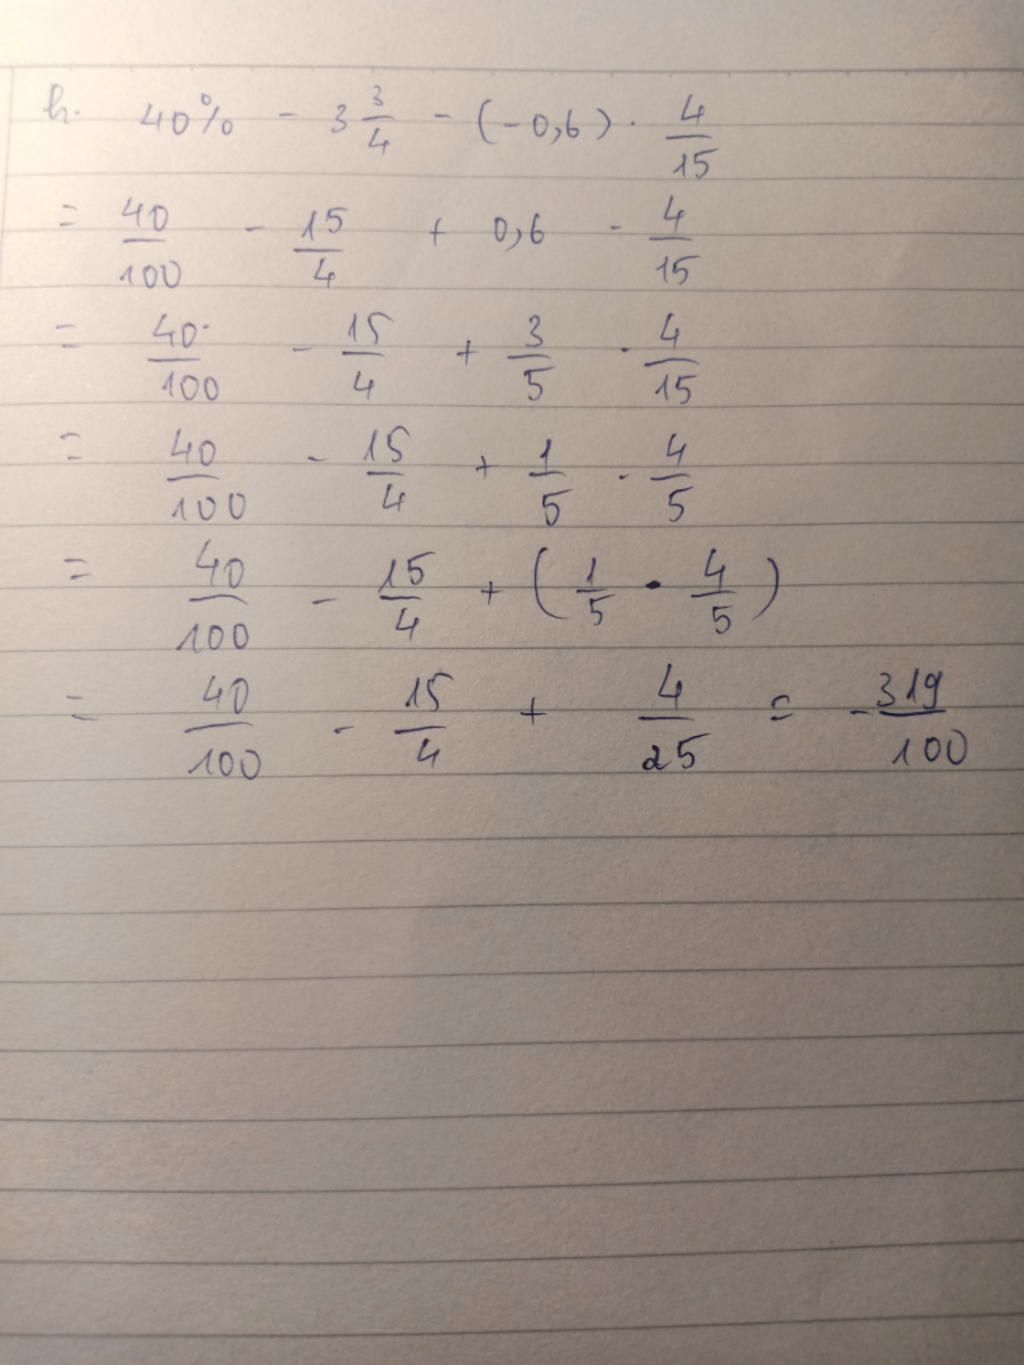 h. 40% - 3 3/4 - (-0,6) · 4/15
= 40/100 - 15/4 + 0,6 - 4/15
= 40/100 - 15/4 + 3/5 · 4/15
= 40/100 - 15/4 + 1/5 · 4/5
= 40/100 - 15/4 + (1/5 · 4/5)
= 40/100 - 15/4 + 4/25 = -319/100